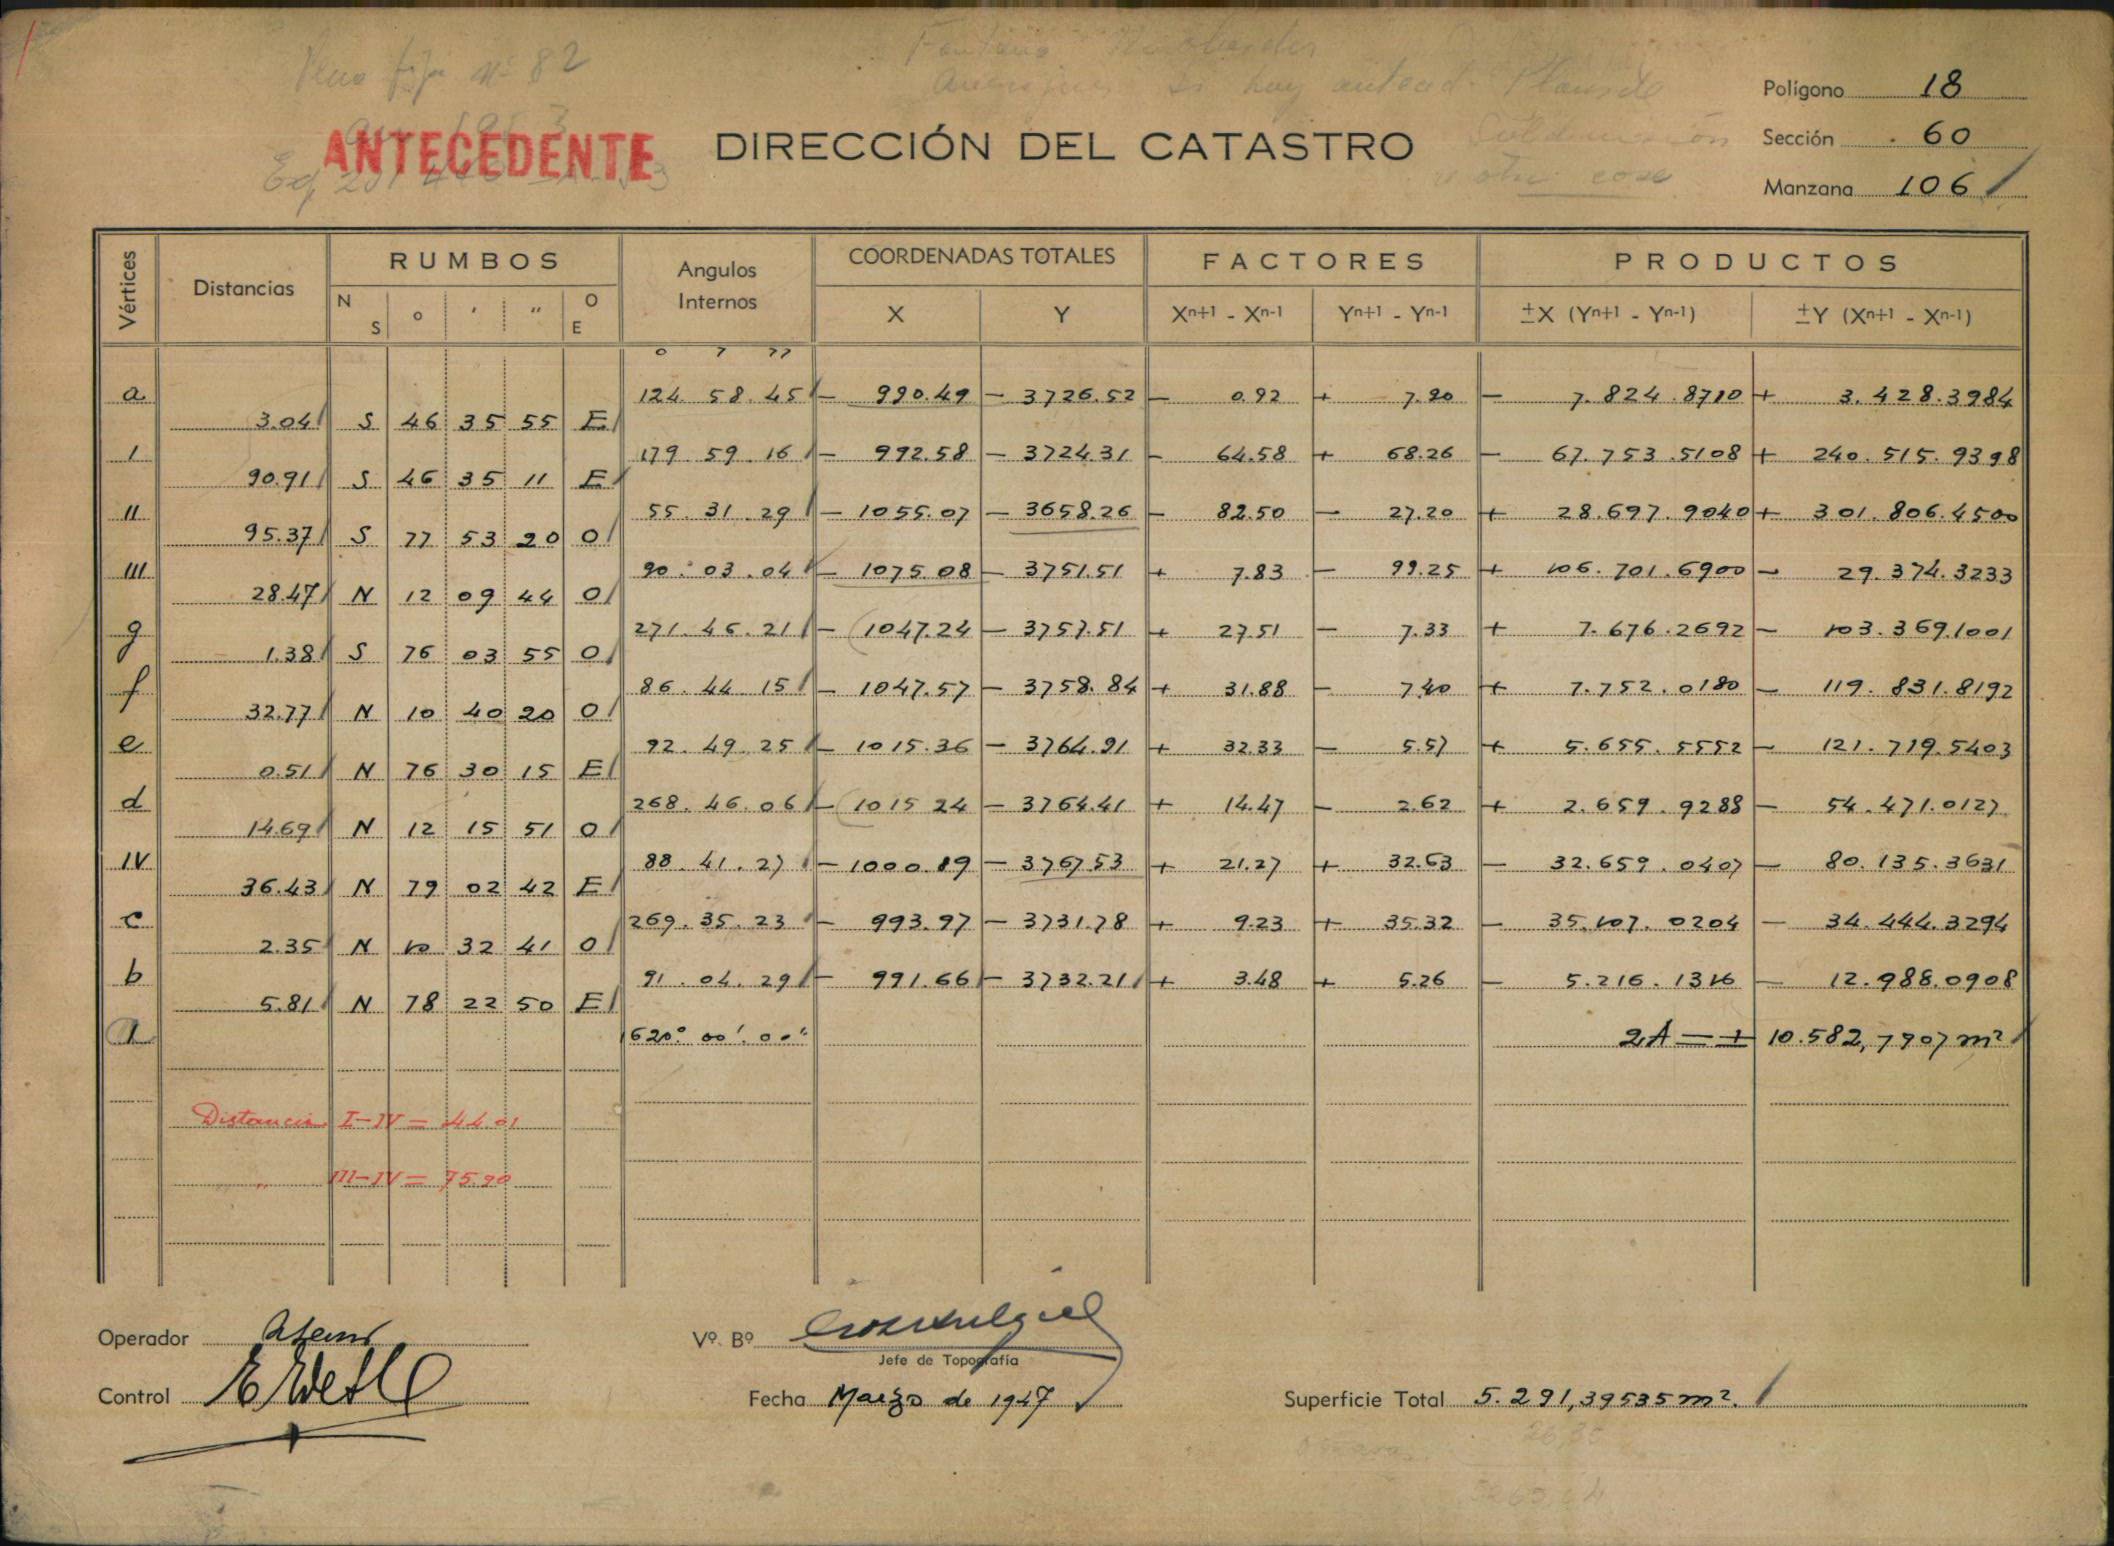 Plano fija Nº 82
Polígono 18
ANTECEDENTE DIRECCIÓN DEL CATASTRO
Sección 60
Manzana 106
Vértices Distancias RUMBOS Angulos Internos COORDENADAS TOTALES FACTORES PRODUCTOS
N S ° ' " O E X Y Xn+1 - Xn-1 Yn+1 - Yn-1 ±X (Yn+1 - Yn-1) ±Y (Xn+1 - Xn-1)
° ' "
a 124 58 45 - 990.49 - 3726.52 - 0.92 + 7.90 - 7.824.8710 + 3.428.3984
3.04 S 46 35 55 E
I 179 59 16 - 992.58 - 3724.31 - 64.58 + 68.26 - 67.753.5108 + 240.515.9398
90.91 S 46 35 11 E
II 55 31 29 - 1055.07 - 3658.26 - 82.50 - 27.20 + 28.697.9040 + 301.806.4500
95.37 S 77 53 20 O
III 90 03 04 - 1075.08 - 3751.51 + 7.83 - 99.25 + 106.701.6900 - 29.374.3233
28.47 N 12 09 44 O
g 271 46 21 - 1047.24 - 3757.51 + 27.51 - 7.33 + 7.676.2692 - 103.369.1001
1.38 S 76 03 55 O
f 86 44 15 - 1047.57 - 3758.84 + 31.88 - 7.40 + 7.752.0180 - 119.831.8192
32.77 N 10 40 20 O
e 92 49 25 - 1015.36 - 3764.91 + 32.33 - 5.57 + 5.655.5552 - 121.719.5403
0.51 N 76 30 15 E
d 268 46 06 - 1015 24 - 3764.41 + 14.47 - 2.62 + 2.659.9288 - 54.471.0127
14.69 N 12 15 51 O
IV 88 41 27 - 1000.89 - 3767.53 + 21.27 + 32.63 - 32.659.0407 - 80.135.3631
36.43 N 79 02 42 E
c 269 35 23 - 993.97 - 3731.78 + 9.23 + 35.32 - 35.107.0204 - 34.444.3294
2.35 N 10 32 41 O
b 91 04 29 - 991.66 - 3732.21 + 3.48 + 5.26 - 5.216.1316 - 12.988.0908
5.81 N 78 22 50 E
a 1620° 00' 00" 2A = + 10.582,7907 m²
Distancia I-IV = 44.01
" III-IV = 75.90
Operador
Vº Bº
Jefe de Topografía
Control
Fecha Marzo de 1947
Superficie Total 5.291,39535 m².